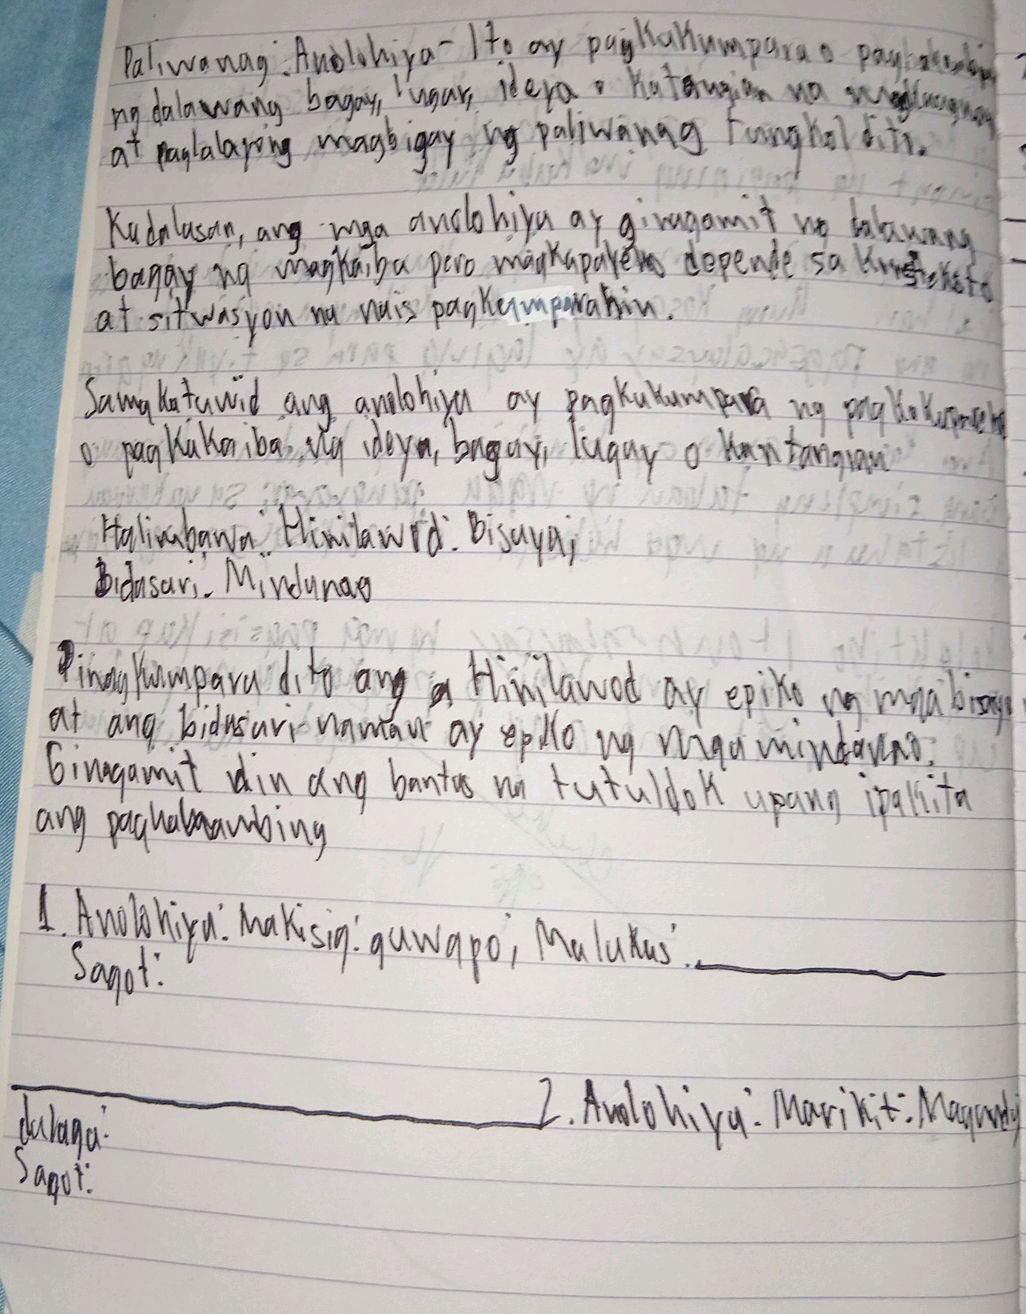 Paliwanag: Anolohiya - Ito ay pagkakumpara o
ng dalawang bagay, lugar, ideya o katangian na
at paglalayong magbigay ng paliwanag tungkol dito.
Kadalasan, ang mga anolohiya ay ginagamit ng dalawang
bagay ng magkaiba pero magkapareho depende sa konteksto
at sitwasyon na nais pagkumparahin.
Samakatuwid ang anolohiya ay pagkukumpara ng
o pagkakaiba ng ideya, bagay, lugay o kantangian
Halimbawa: Hinilawod: Bisaya;
Bidasari. Mindanao
Pinagkumpara dito ang a Hinilawod ay epiko ng mga bisaya
at ang bidasari naman ay epiko ng mga mindanao.
Ginagamit din ang bantas na tutuldok upang ipakita
ang paghahaambing
1. Anolohiya: Makisig: guwapo; Malakas:
Sagot:
2. Anolohiya: Marikit: Maganda
dalaga:
Sagot: